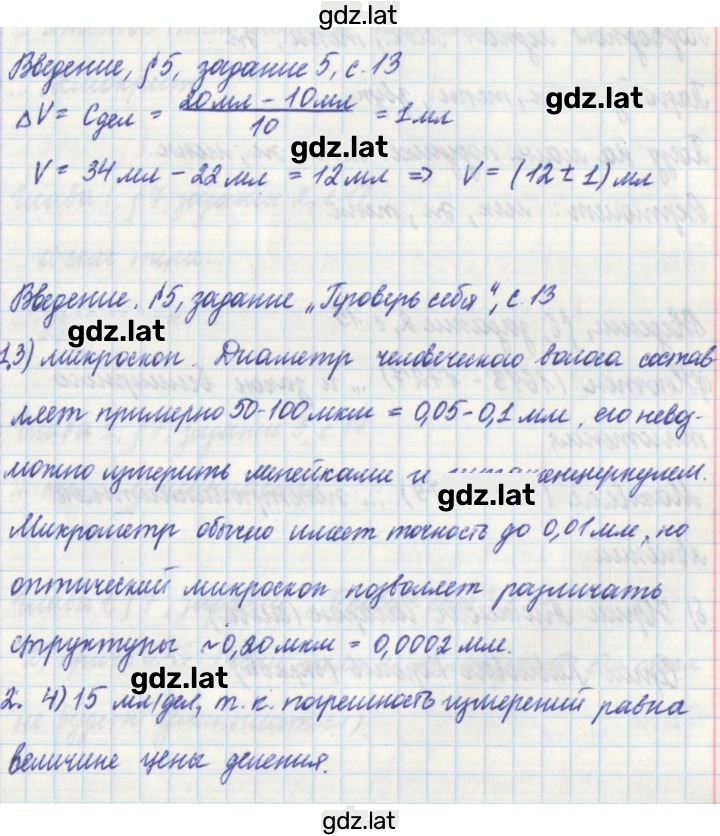 gdz.lat
Введение, §5, задание 5, с. 13
ΔV = Cдел = (20 мл - 10 мл)/10 = 1 мл
gdz.lat
gdz.lat
V = 34 мл - 22 мл = 12 мл => V = (12 ± 1) мл
Введение, §5, задание „Проверь себя“, с. 13
gdz.lat
1. 3) микроскоп. Диаметр человеческого волоса состав
ляет примерно 50-100 мкм = 0,05-0,1 мм, его невоз-
можно измерить линейками и
gdz.lat
Микрометр обычно имеет точность до 0,01 мм, но
оптический микроскоп позволяет различать
структуры ~0,20 мкм = 0,0002 мм.
gdz.lat
2. 4) 15 мл/дел, т. к. погрешность измерений равна
величине цены деления.
gdz.lat
gdz.lat